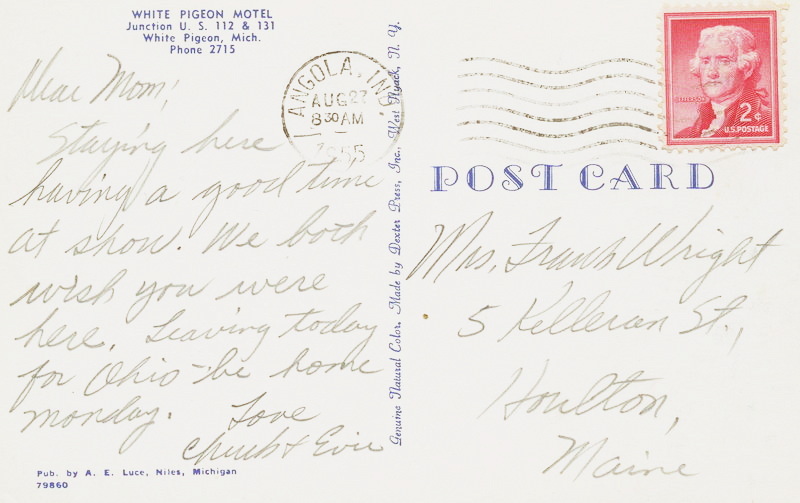 WHITE PIGEON MOTEL
Junction U. S. 112 & 131
White Pigeon, Mich.
Phone 2715
Dear Mom;
Staying here
having a good time
at show. We both
wish you were
here. Leaving today
for Ohio - be home
monday. Love
Chub & Evie
Pub. by A. E. Luce, Niles, Michigan
79860
Genuine Natural Color. Made by Dexter Press, Inc., West Nyack, N. Y.
ANGOLA, IND.
AUG 27
8 30 AM
1955
JEFFERSON
2¢
U.S. POSTAGE
POST CARD
Mrs. Frank Wright
5 Kelleran St.,
Houlton,
Maine